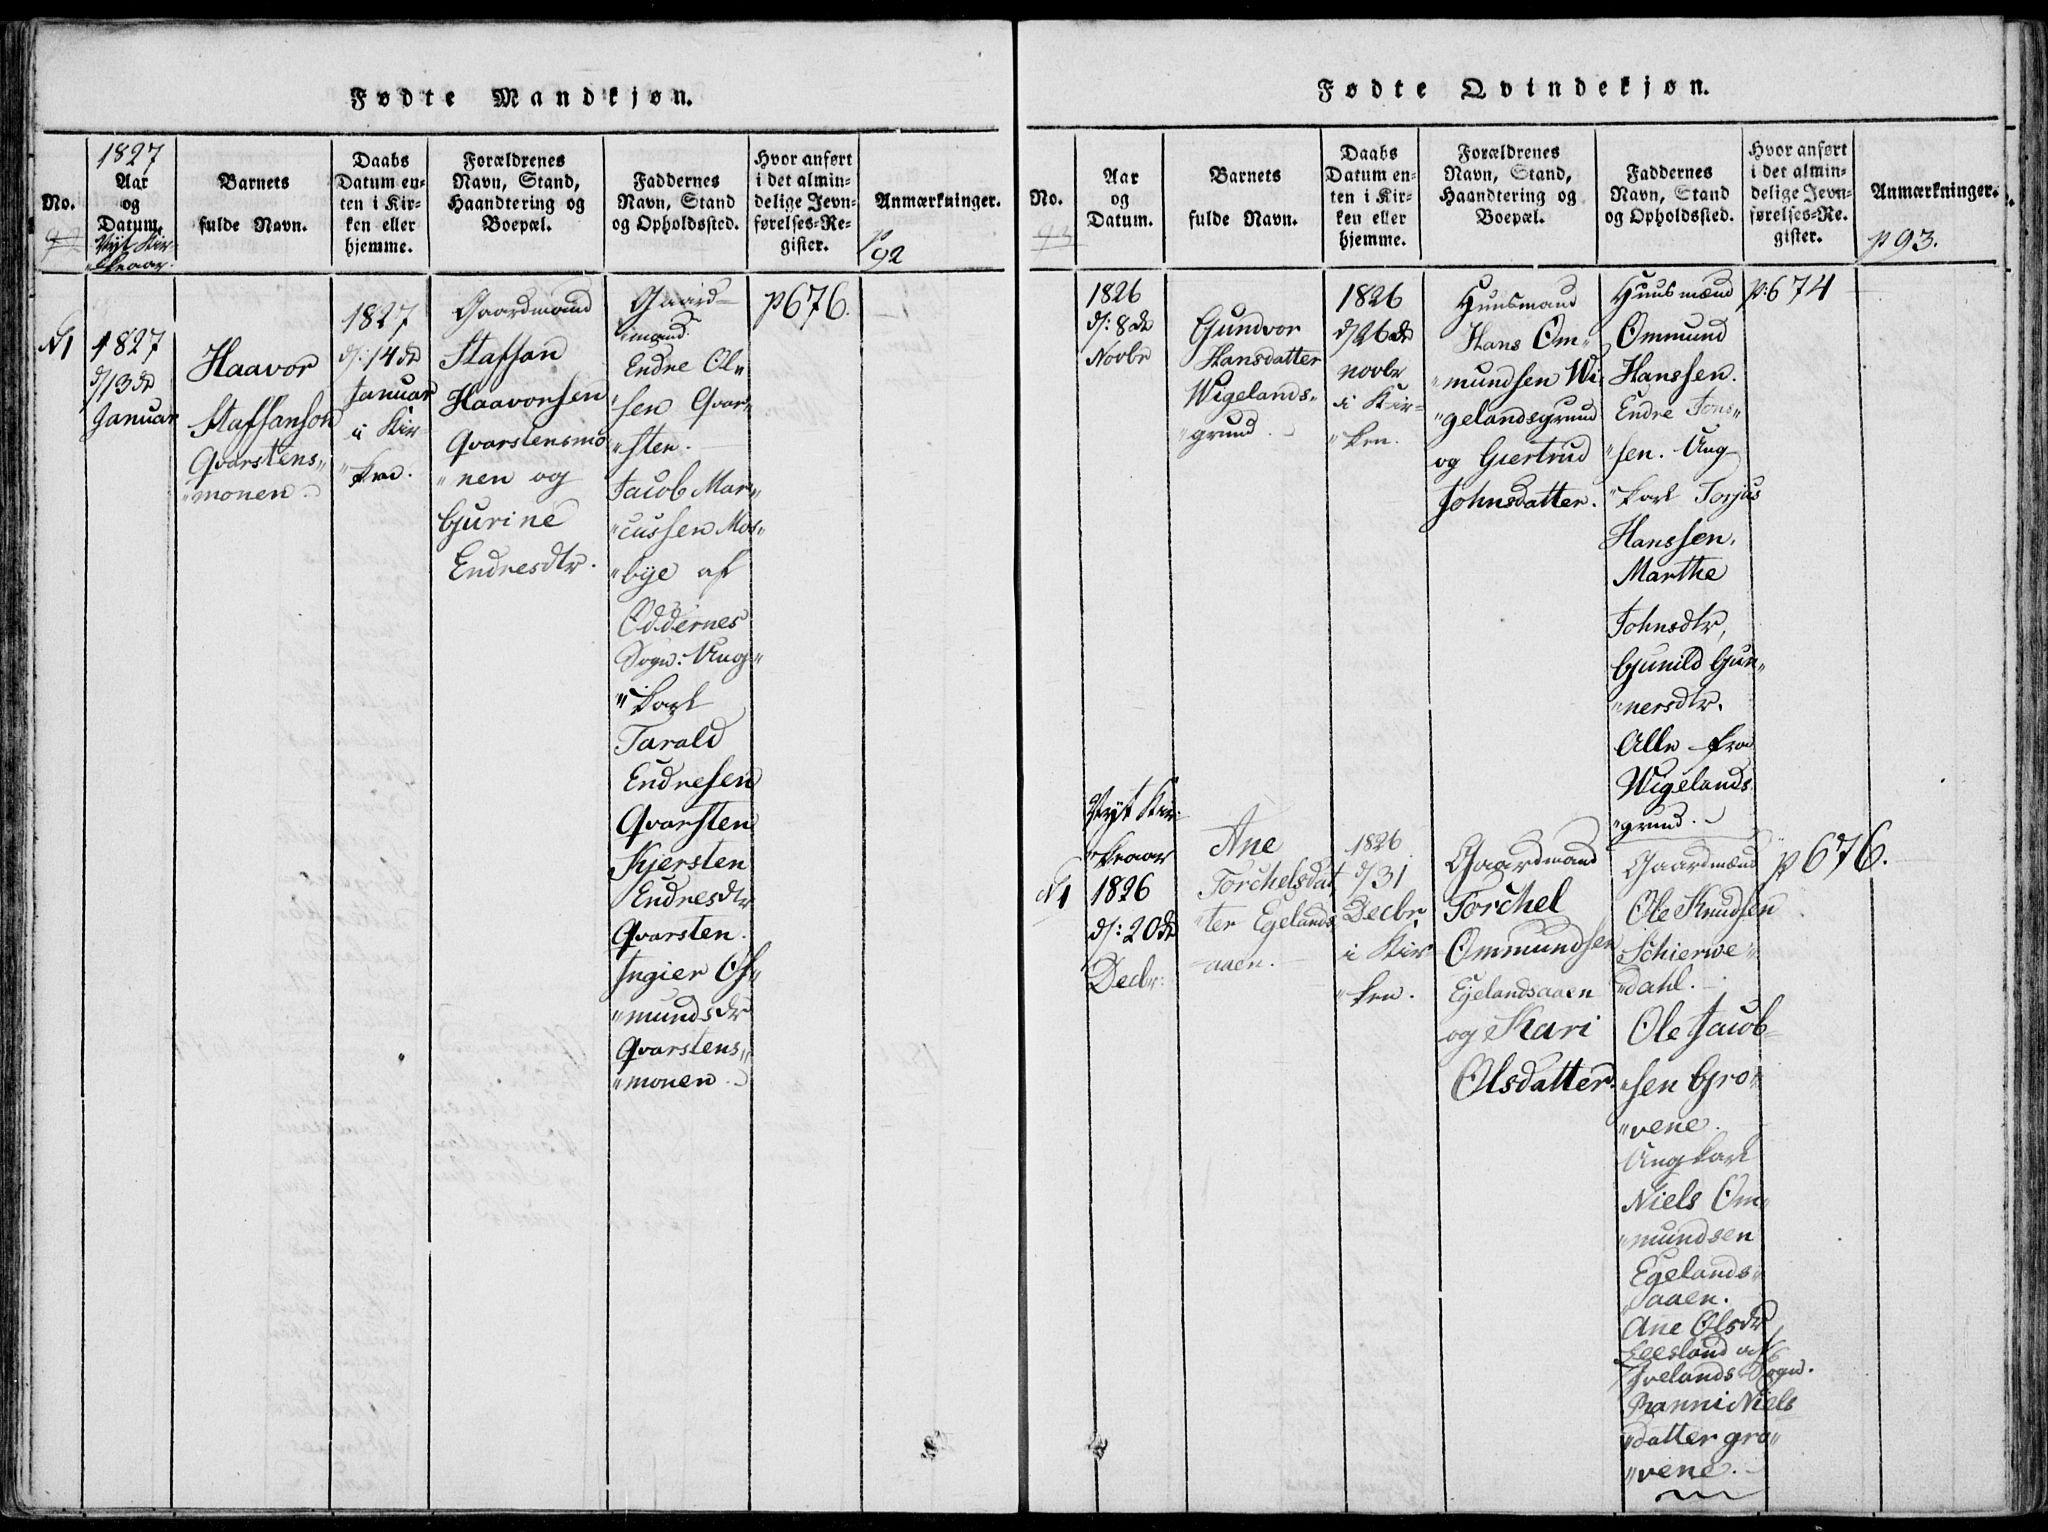 Fødte Mandkjøn.
No.
1827
Aar
og
Datum.
Nyt Kir-
keaar.
Barnets
fulde Navn.
Daabs
Datum en-
ten i Kir-
ken eller
hjemme.
Forældrenes
Navn, Stand,
Haandtering og
Boepæl.
Faddernes
Navn, Stand
og Opholdssted.
Hvor anført
i det almin-
delige Jevn-
førelses-Re-
gister.
Anmærkninger.
p
92
N1
1827
d/13de
Januar
Haavor
Staffanson
Qvarstens„
„monen.
1827
d/:14de
Januar
i Kir-
„ken.
Gaardmand
Staffan
Haavorsen
Qvarstensmo
„nen og
Gurine
Endresdtr.
Gaard-
mænd
Endre Ol„
„sen Qvar„
„sten.
Jacob Mar„
„cussen Mos„
„bye af
Oddernes
Sogn. Ung„
„karl
Tarald
Endresen
Qvarsten
Kjersten
Endresdtr
Qvarsten.
Ingier Os„
„mundsdr
Qvarstens„
„monen.
p676.
Fødte Qvindekjøn.
No.
93
Aar
og
Datum.
Barnets
fulde Navn.
Daabs
Datum en-
ten i Kir-
ken eller
hjemme.
Forældrenes
Navn, Stand,
Haandtering og
Boepæl.
Faddernes
Navn, Stand
og Opholdssted.
Hvor anført
i det almin-
delige Jevn-
førelses-Re-
gister.
Anmærkninger.
p 93.
1826
d/: 8de
Novbr
Gundvor
Hansdatter
Wigelands„
„grund.
1826
d/26de
novbr
i Kir-
„ken.
Huusmand
Hans Om„
„mundsen Wi„
„gelandsgrund
og Giertrud
Johnsdatter.
Huusmænd
Ommund
Hanssen.
Endre Jons„
„sen. Ung
„karl Torjus
Hanssen,
Marthe
Johnsdtr,
Gunild Gun„
„nersdtr.
Alle fra
Wigelands
„grund.
p:674
Nyt Kir-
„keaar
N1
1826
d/:20de
Decbr:
Ane
Torchelsdat
„ter Egelands
aaen.
1826
d/31
Decbr
i Kir
„ken.
Gaardmand
Torchel
Ommundsen
Egelandsaaen
og Kari
Olsdatter.
Gaardmænd
Ole Knudsen
Schierve„
„dahl.
Ole Jacob-
„sen Gro„
„vene.
Ungkarl
Niels Om„
„mundsen
Egelands„
„aaen.
Ane Olsdr
af
Ivelands Sogn.
Ranni Niels
„datter gro„
„vene.
p676.